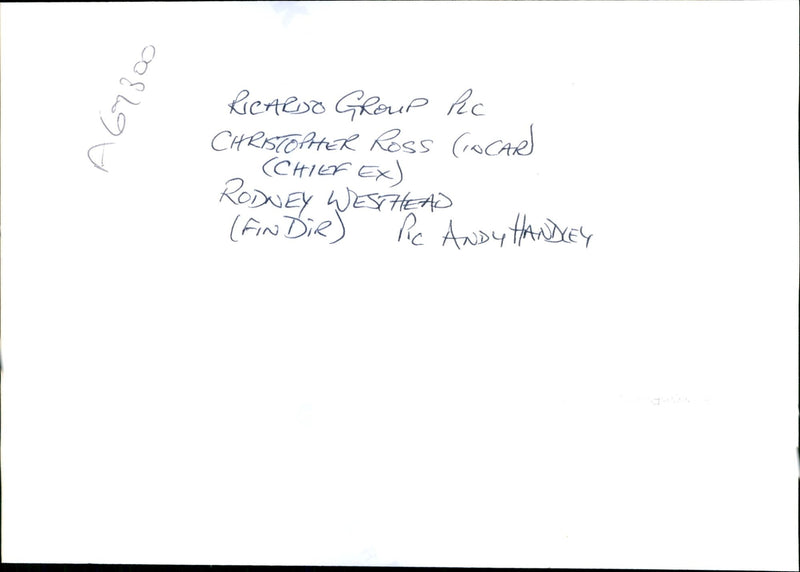 A67300
RICARDO GROUP PLC
CHRISTOPHER ROSS (IN CAR)
(CHIEF EX)
RODNEY WESTHEAD
(FIN DIR) PIC ANDY HANDLEY